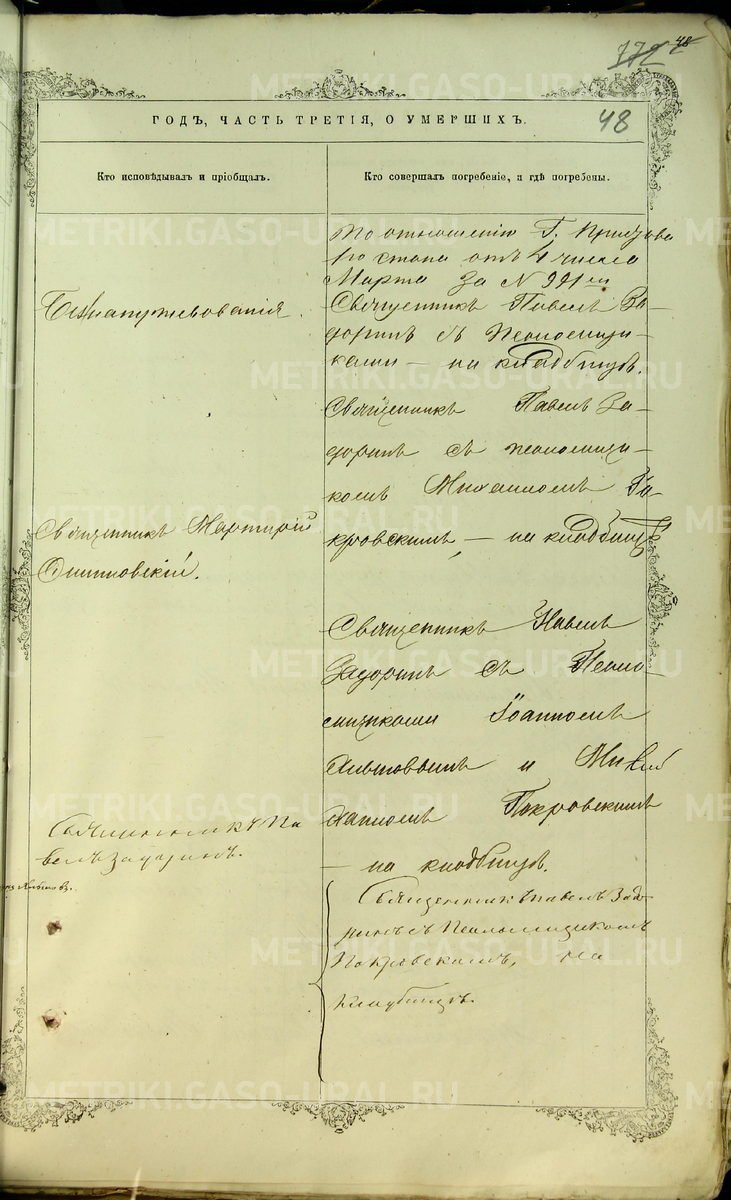 172 48
ГОДЪ, ЧАСТЬ ТРЕТІЯ, О УМЕРШИХЪ.
48
Кто исповѣдывалъ и пріобщалъ.
Кто совершалъ погребеніе, и гдѣ погребены.
По отношенію Г. Пристова
1го стана отъ 4 числа
Марта За N 991м
Священникъ Павелъ За-
доринъ съ Псаломщи-
ками — на кладбищѣ.
Священникъ Павелъ За-
доринъ съ псаломщи-
комъ Михаиломъ По-
кровскимъ, — на кладбищѣ
Священникъ Мартирій
Священникъ Павелъ
Задоринъ съ Псало-
мщиками Іоанномъ
и Ми
хаиломъ Покровскимъ
— на кладбищѣ.
Священникъ Па
велъ Задоринъ.
Священникъ Павелъ Задо-
ринъ съ Псаломщикомъ
Покровскимъ, на
кладбищѣ.
METRIKI.GASO-URAL.RU